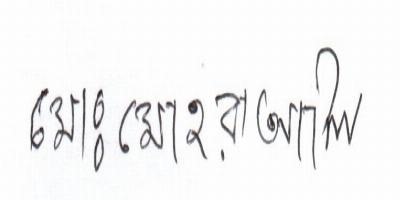 মোঃ মোহর আলি